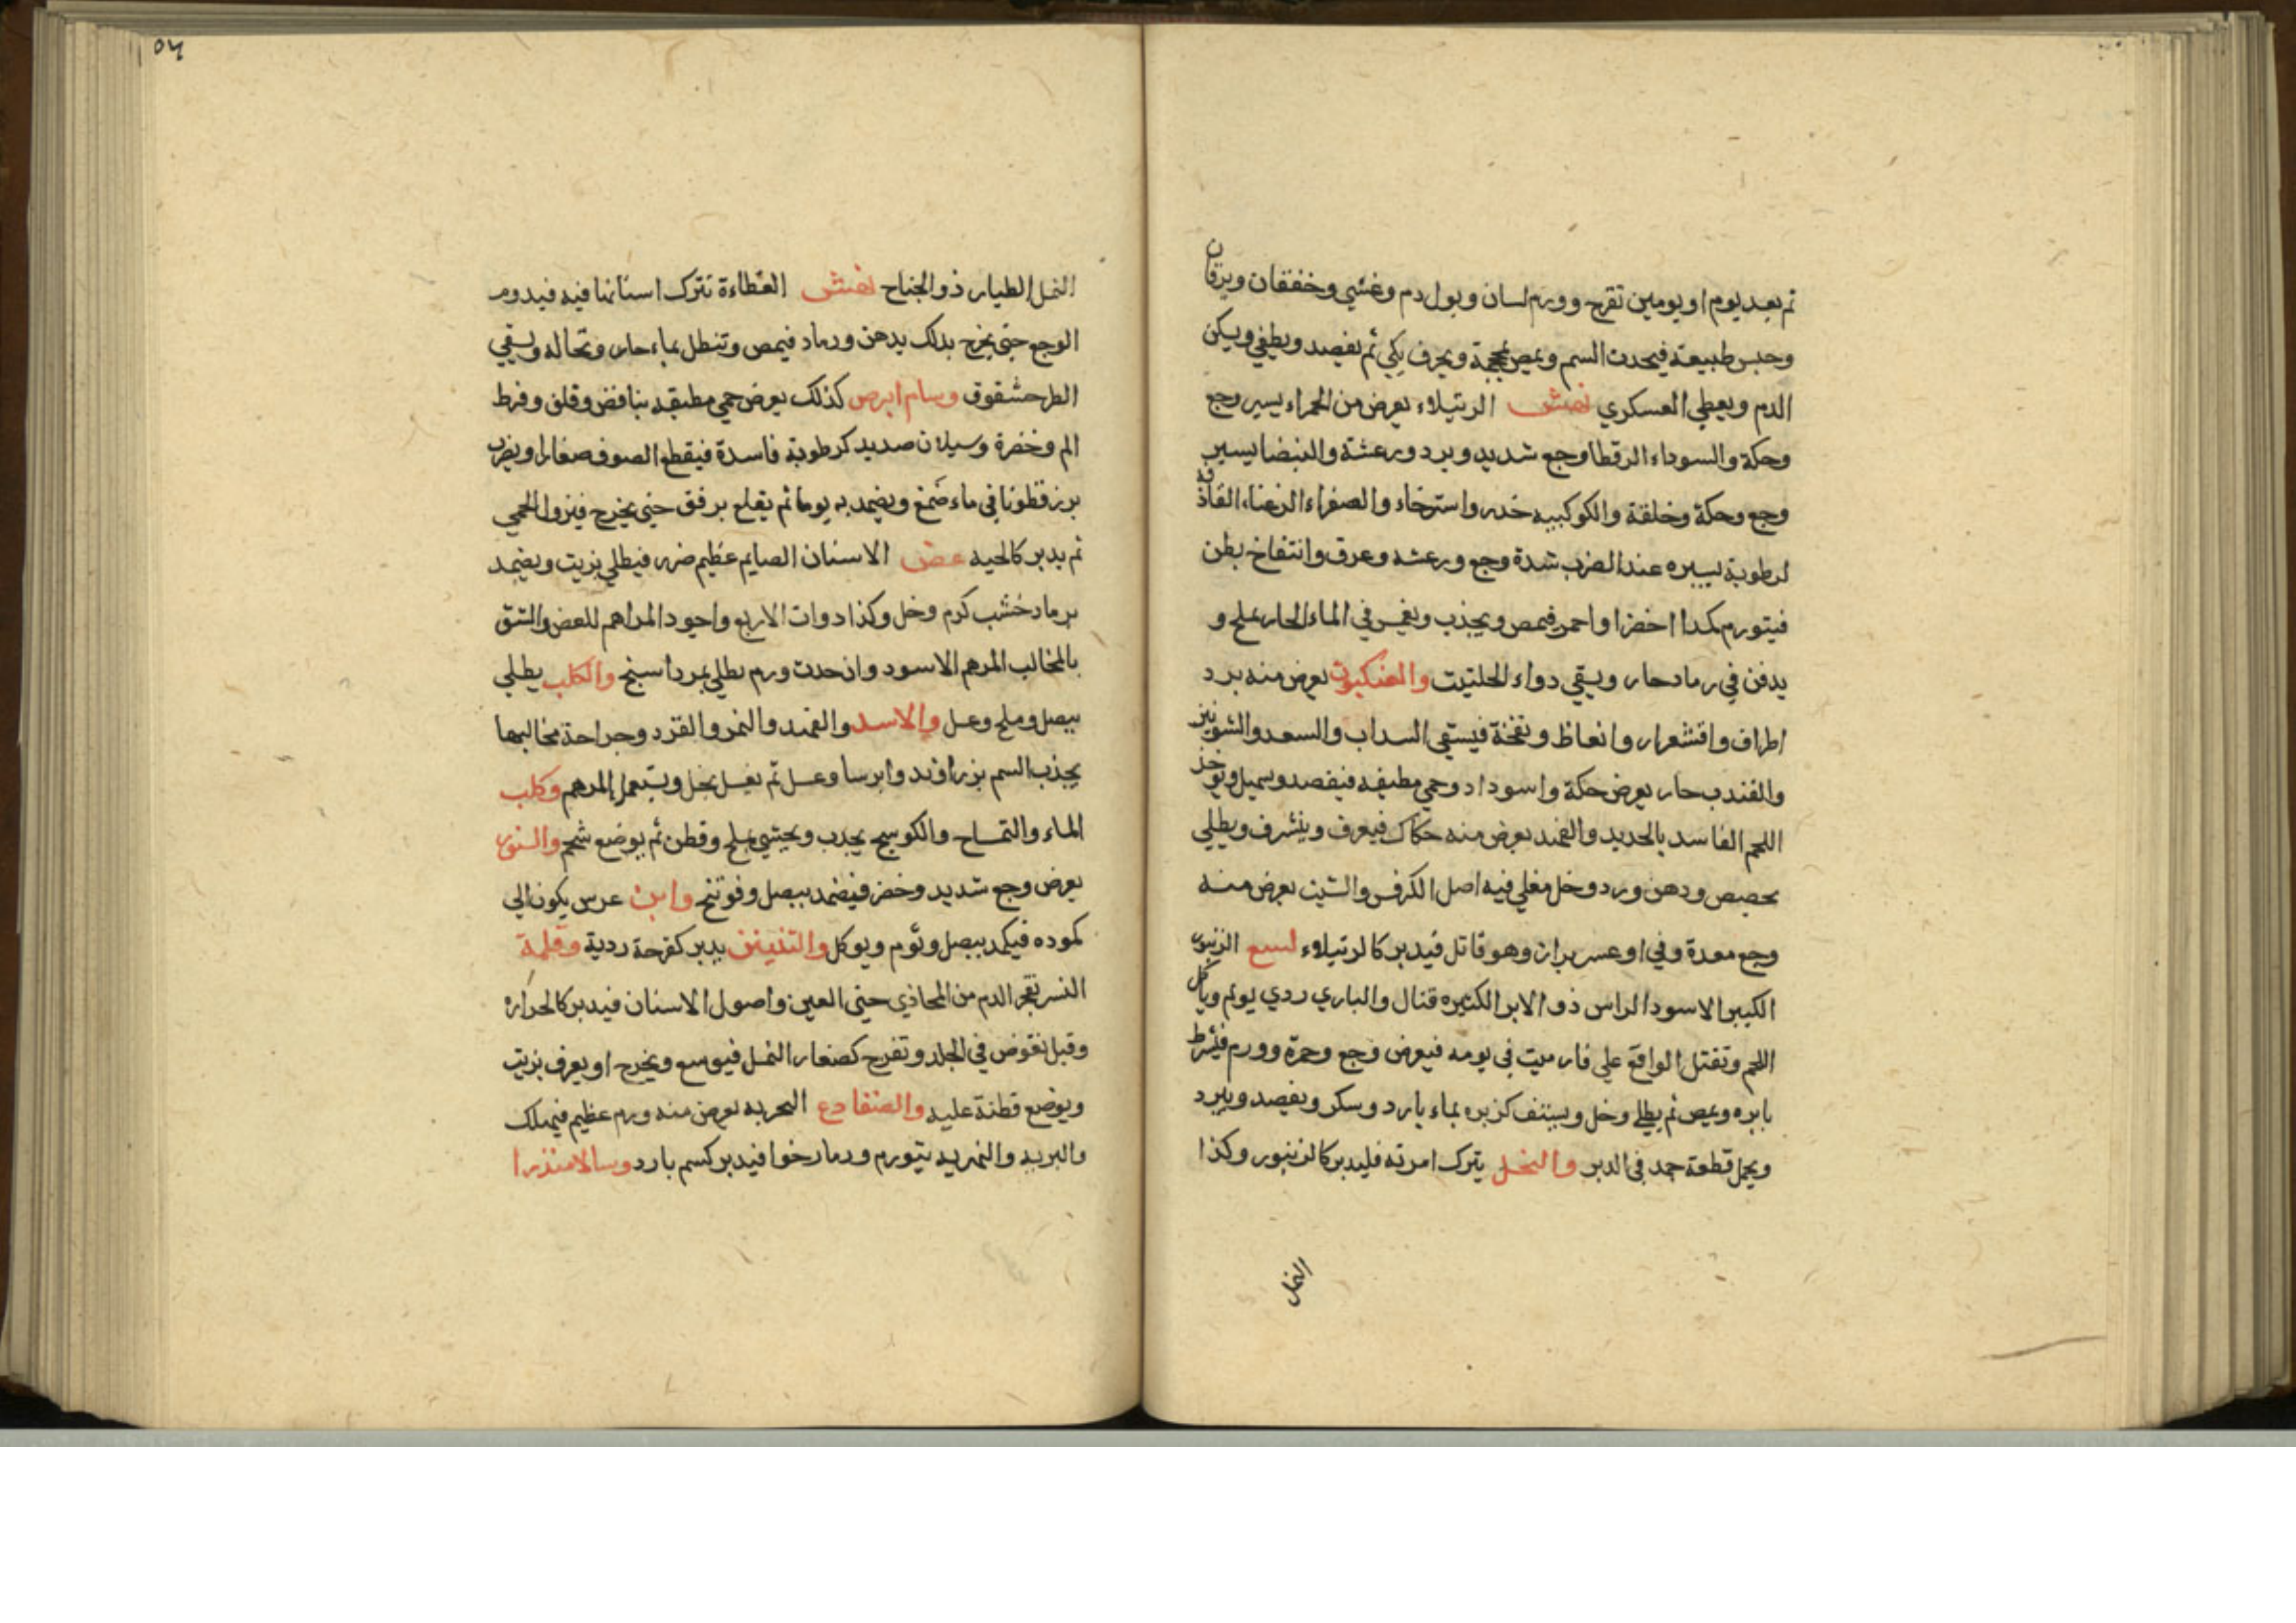 ثم بعد يوم او يومين تقرح وورم لسان وبول دم وغشي وخفقان ويرقان
وحبس طبيعة فيحدث السم ويمص بمحجمة ويحرف بكي ثم يفصد ويطفي ويسكن
الدم ويعطي العسكري نهش الرتيلاء يعرض من الحمراء يسير وجع
وحكة والسوداء الرقطا وجع شديد وبرد ورعشة والبيضا يسير
وجع وحكة وخلفة والكوكبيه خدر واسترخاء والصفراء الزغباء القاذفة
لرطوبة يسيره عند الضرب شدة وجع ورعشه وعرق وانتفاخ بطن
فيتورم كمدا اخضرا واحمر فيمص ويجذب ويغمس في الماء الحار بملح و
يدفن في رماد حار ويسقي دواء الحلتيت والعنكبوت يعرض منه برد
اطراف واقشعرار وانعاظ ونفخة فيسقي السداب والسعد والشونيز
حار يعرض حكة واسوداد وحمي مطبقه فيفصد ويسهل ويوخذ
اللحم الفاسد بالحديد والفهد يعرض منه حكاك فيعرف وينشرف ويطلي
بحصص ودهن ورد وخل مغلي فيه اصل الكرفس والشبت يعرض منه
وجع معدة وقي او عسر براز وهو قاتل فيدبر كالرتيلاء لسع الزنبور
الكبير الاسود الراس ذو الابر الكثيره قتال والباري ردي يولم وياكل
اللحم وتقتل الواقع علي فار ميت في يومه فيعرض وجع وحمرة وورم فيشرط
بابره ويمص ثم يطلي وخل ويستف كزبره بماء بارد وسكر ويفصد ويبرد
ويحمل قطعة جمد في الدبر والنحل يترك امرته فليدبر كالزنبور وكذا
النمل
٥٤
النمل الطيار ذو الجناح نهش العظاءة تترك اسنانها فيه فيدوم
الوجع حتي يخرج بدلك بدهن ورماد فيمص وتنطل بماء حار ونخاله ويسقي
الطرحشقوق وسام ابرص كذلك يعرض حمي مطبقه بنافض وقلق وفرط
الم وخضرة وسيلان صديد كرطوبة فاسدة فيقطع الصوف صغارا ويضرب
بزرقطونا في ماء صمغ ويضمد به يوما ثم يقلع برفق حتي يخرج فيزوا الحمي
ثم يدبر كالحيه عض الاسنان الصايم عظيم ضرر فيطلي بزيت ويضمد
برماد خشب كرم وخل وكذا دوات الاربع واجود المراهم للعض والشق
بالمخالب المرهم الاسود وان حدث ورم يطلي بمرداسنج والكلب يطلي
ببصل وملح وعسل والاسد والفهد والنمر والقرد وجراحة مخالبها
يجذب السم بزراوند وايرسا وعسل ثم يغسل بخل ويستعمل المرهم وكلب
الماء والتمساح والكوسج يجذب ويحتشي بملح وقطن ثم يوضع شحم والسنور
يعرض وجع شديد وخضر فيضمد ببصل وفوتنج وابن عرس يكون الي
كموده فيكمد ببصل وثوم ويوكل والتنينن يدبر كقرحة ردية وقملة
النسر يفجر الدم من المحاذي حتي العين واصول الاسنان فيدبر كالحراره
وقيل تغوض في الجلد وتقرح كصغار النمل فيوسع ويخرج او يعرف بزيت
ويوضع قطنة عليه والضفادع البحريه يعرض منه ورم عظيم فيهلك
والبريه والنهريه يتورم ورما رخوا فيدبر كسم بارد وسالامندرا